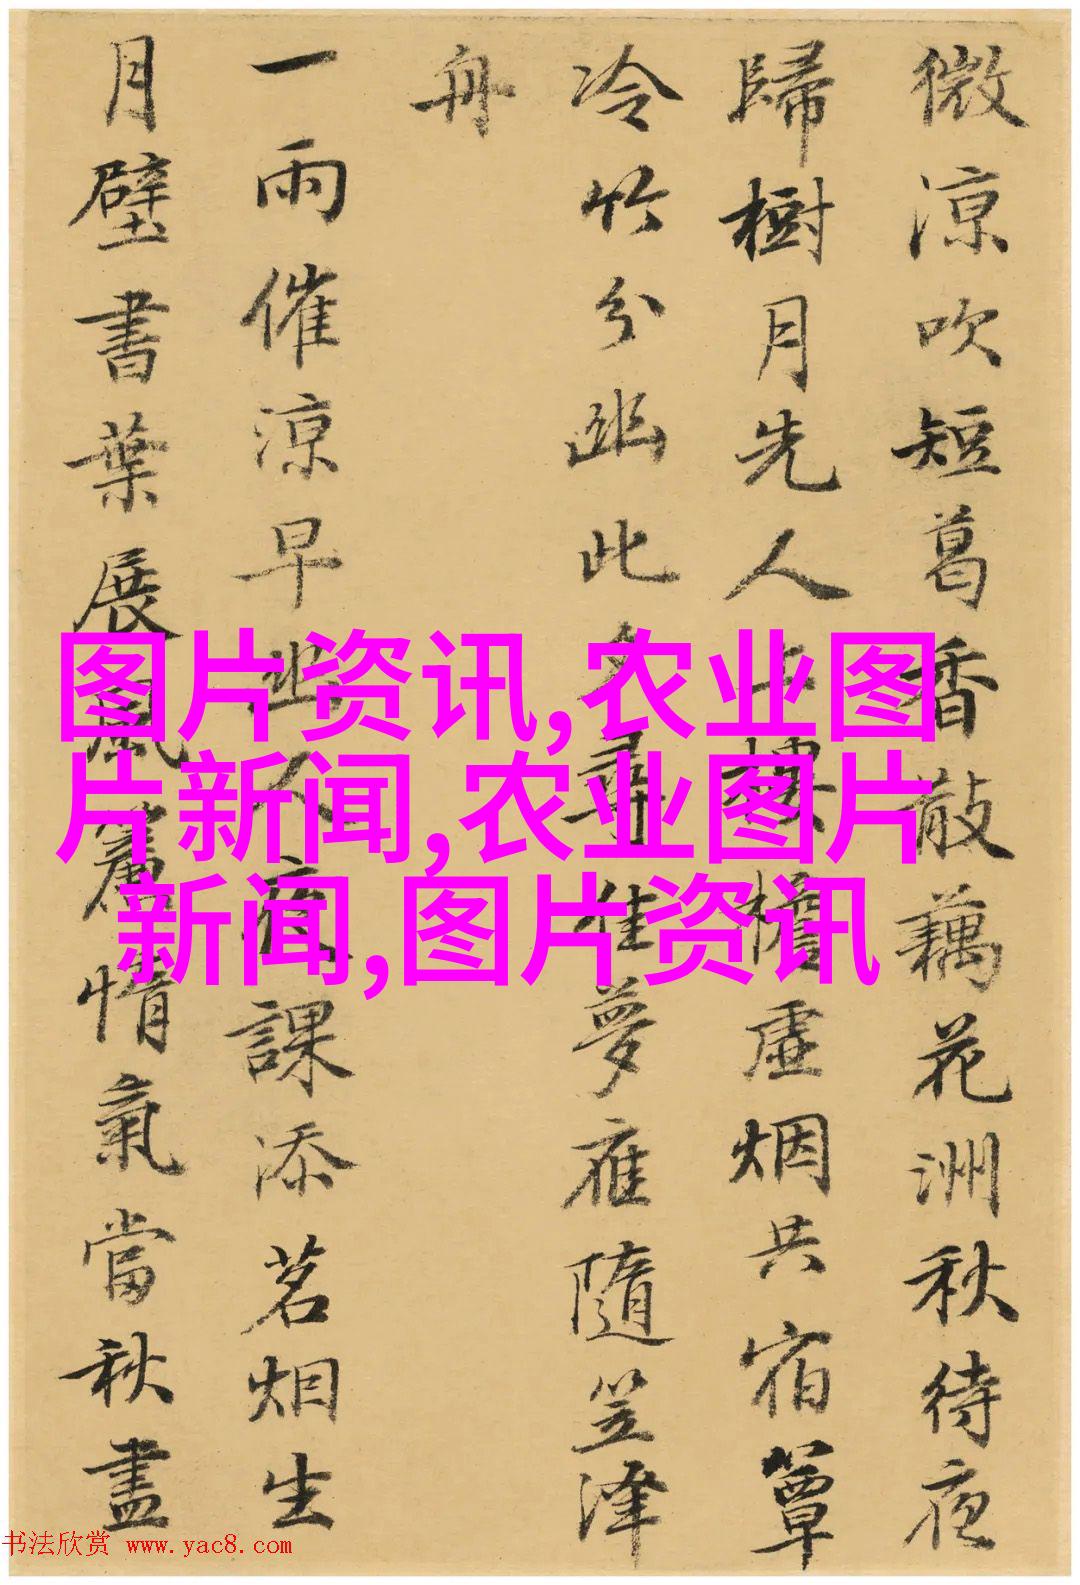 微涼吹短葛香散藕花洲秋待夜
歸樹月先人上樓檐虛烟共宿簟
冷竹分幽此夕尋佳夢雁隨笠澤
舟
一雨催涼早幽人夜課添茗烟生
月壁書葉展風簾惰氣當秋盡
图片资讯,农业图
片新闻,农业图片
新闻,图片资讯
书法欣赏 www.yac8.com